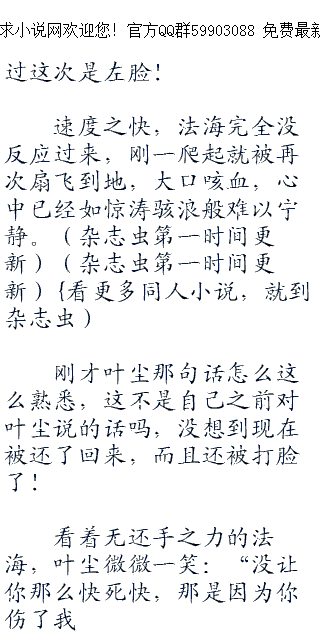 求小说网欢迎您！官方QQ群59903088 免费最新
过这次是左脸！
速度之快，法海完全没
反应过来，刚一爬起就被再
次扇飞到地，大口咳血，心
中已经如惊涛骇浪般难以宁
静。（杂志虫第一时间更
新）（杂志虫第一时间更
新）{看更多同人小说，就到
杂志虫）
刚才叶尘那句话怎么这
么熟悉，这不是自己之前对
叶尘说的话吗，没想到现在
被还了回来，而且还被打脸
了！
看着无还手之力的法
海，叶尘微微一笑：“没让
你那么快死快，那是因为你
伤了我